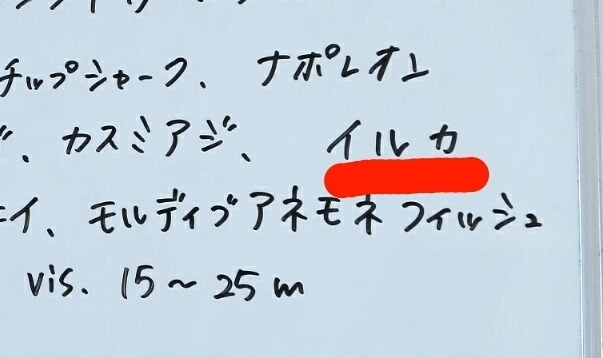 チップシャーク、ナポレオン
、カスミアジ、イルカ
イ、モルディブアネモネフィッシュ
vis. 15～25m